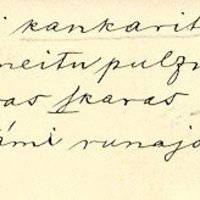 i kankarit
neitu pulzu
as skaras
ami runajo